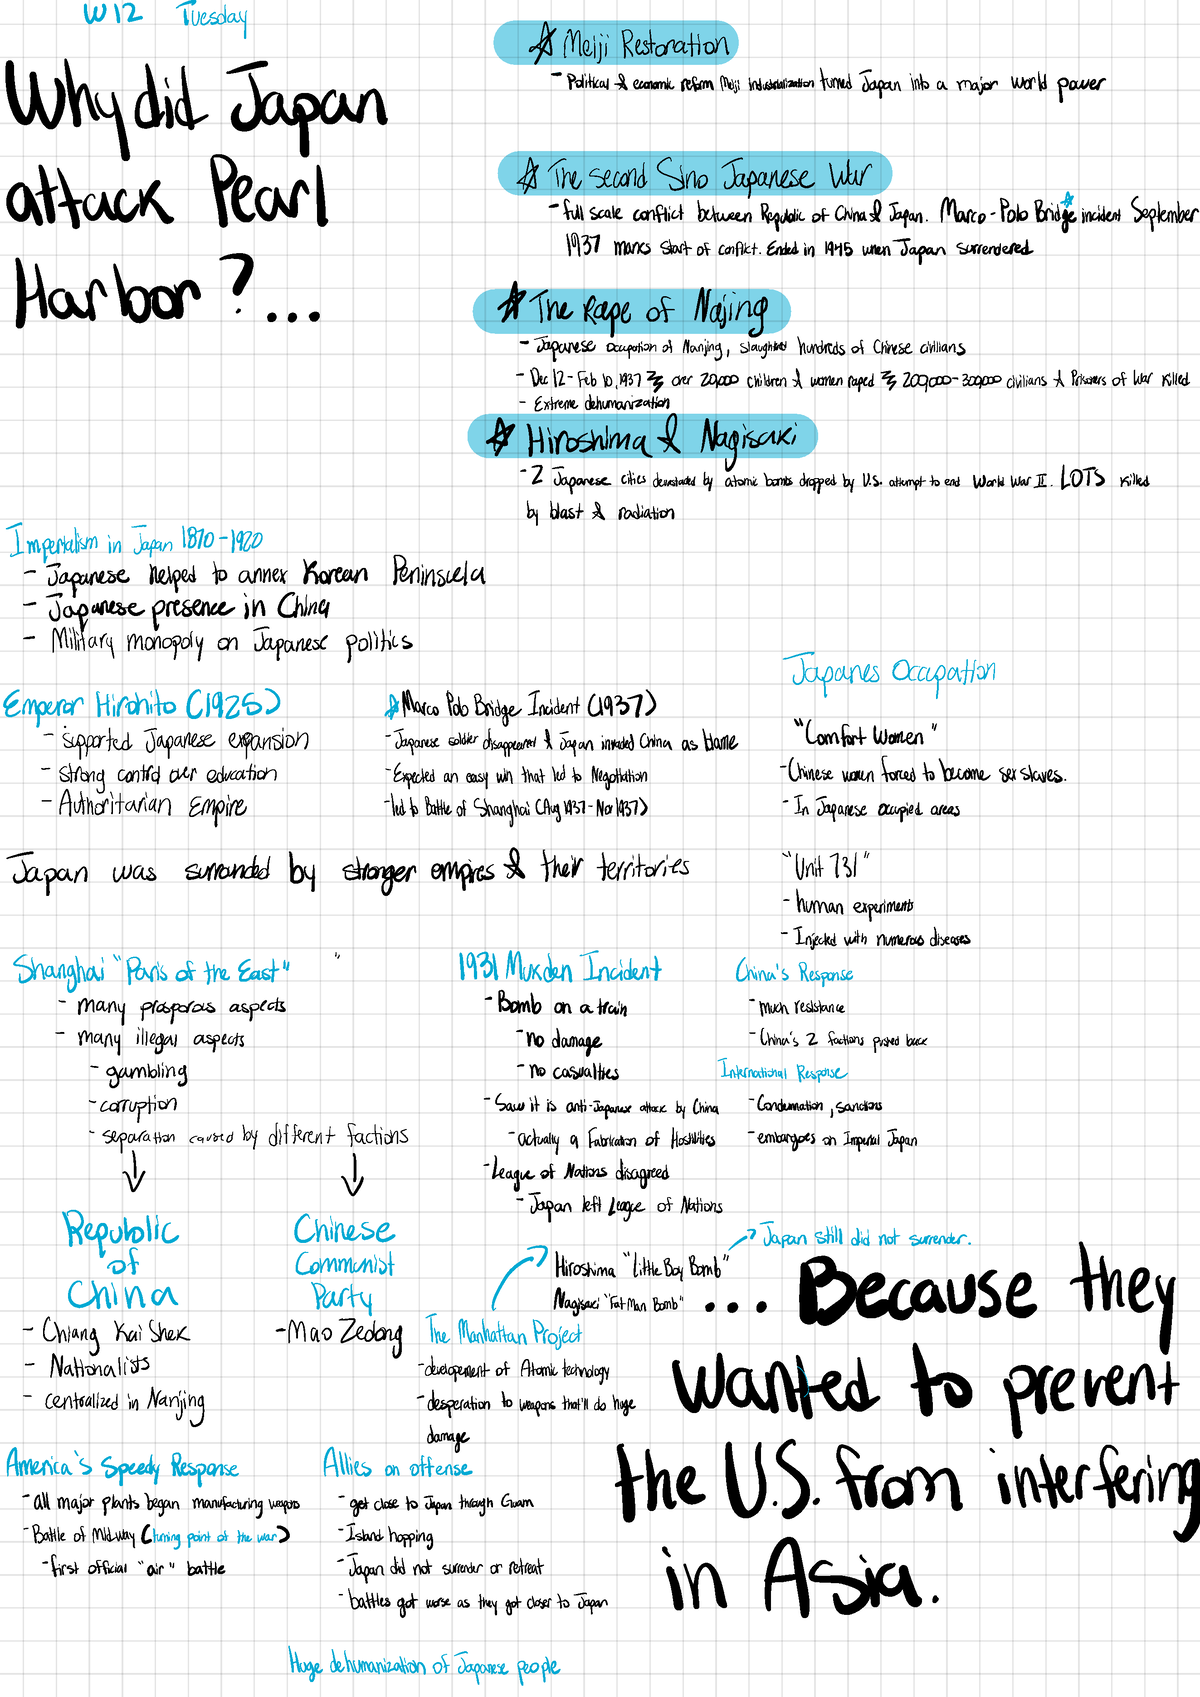 W12 Tuesday
Why did Japan
attack Pearl
Harbor?...
☆ Meiji Restoration
- Political & economic reform Meiji industrialization turned Japan into a major world power
☆ The second Sino Japanese War
- full scale conflict between Republic of China & Japan. Marco-Polo Bridge☆ incident September
1937 marks start of conflict. Ended in 1945 when Japan surrendered
☆ The Rape of Najing
- Japanese occupation of Nanjing, slaughted hundreds of Chinese civilians
- Dec 12 - Feb 10, 1937 over 20,000 children & women raped 200,000-300,000 civilians & Prisoners of War killed
- Extreme dehumanization
☆ Hiroshima & Nagisaki
- 2 Japanese cities devastated by atomic bombs dropped by U.S. attempt to end World War II. LOTS killed
by blast & radiation
Imperialism in Japan 1870-1920
- Japanese helped to annex Korean Peninsula
- Japanese presence in China
- Military monopoly on Japanese politics
Emperor Hirohito (1925)
- supported Japanese expansion
- strong control over education
- Authoritarian Empire
☆ Marco Polo Bridge Incident (1937)
- Japanese soldier disappeared & Japan invaded China as blame
- Expected an easy win that led to Negotiation
- led to Battle of Shanghai (Aug 1937 - Nov 1937)
Japanes Occupation
"Comfort Women"
- Chinese women forced to become sex slaves.
- In Japanese occupied areas
"Unit 731"
- human experiments
- Injected with numerous diseases
Japan was surranded by stronger empires & their territories
Shanghai "Paris of the East" "
- many prosporous aspects
- many illegal aspects
- gambling
- corruption
- separation caused by different factions
Republic
of
China
- Chiang Kai Shek
- Nationalists
- centralized in Nanjing
Chinese
Communist
Party
- Mao Zedong
1931 Mukden Incident
- Bomb on a train
- no damage
- no casualties
- Saw it is anti-Japanese attack by China
- actually a Fabrication of Hostilities
- League of Nations disagreed
- Japan left League of Nations
China's Response
- much resistance
- China's 2 factions pushed back
International Response
- Condemnation, sanctions
- embargoes on Imperial Japan
Japan still did not surrender.
Hiroshima "Little Boy Bomb"
Nagisaki "Fat Man Bomb"
The Manhattan Project
- development of Atomic technology
- desperation to weapons that'll do huge
damage
... Because they
wanted to prevent
the U.S. from interfering
in Asia.
America's Speedy Response
- all major plants began manufacturing weapons
- Battle of Midway (turning point of the war)
- first official "air" battle
Allies on offense
- get close to Japan through Guam
- Island hopping
- Japan did not surrender or retreat
- battles got worse as they got closer to Japan
Huge dehumanization of Japanese people